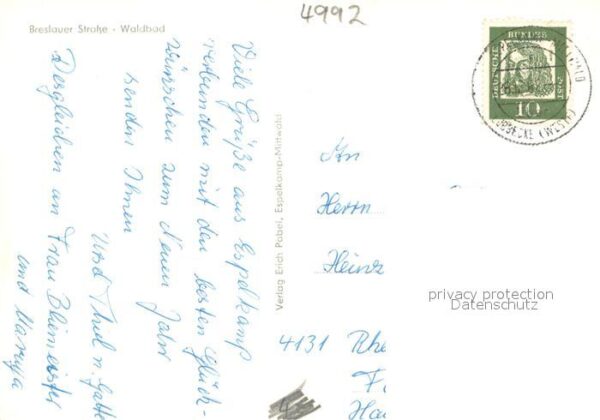 4992
Breslauer Straße - Waldbad
Viele Grüße aus Espelkamp
verbunden mit den besten Glück-
wünschen zum Neuen Jahr
senden Ihnen
u. Gatte
Dergleichen an Frau Blümeister
und
Verlag Erich Pabel, Espelkamp-Mittwald
DEUTSCHE BUNDESPOST
10
LÜBBECKE (WESTF)
An
Herrn
Heinz
4131 Rhe
privacy protection
Datenschutz